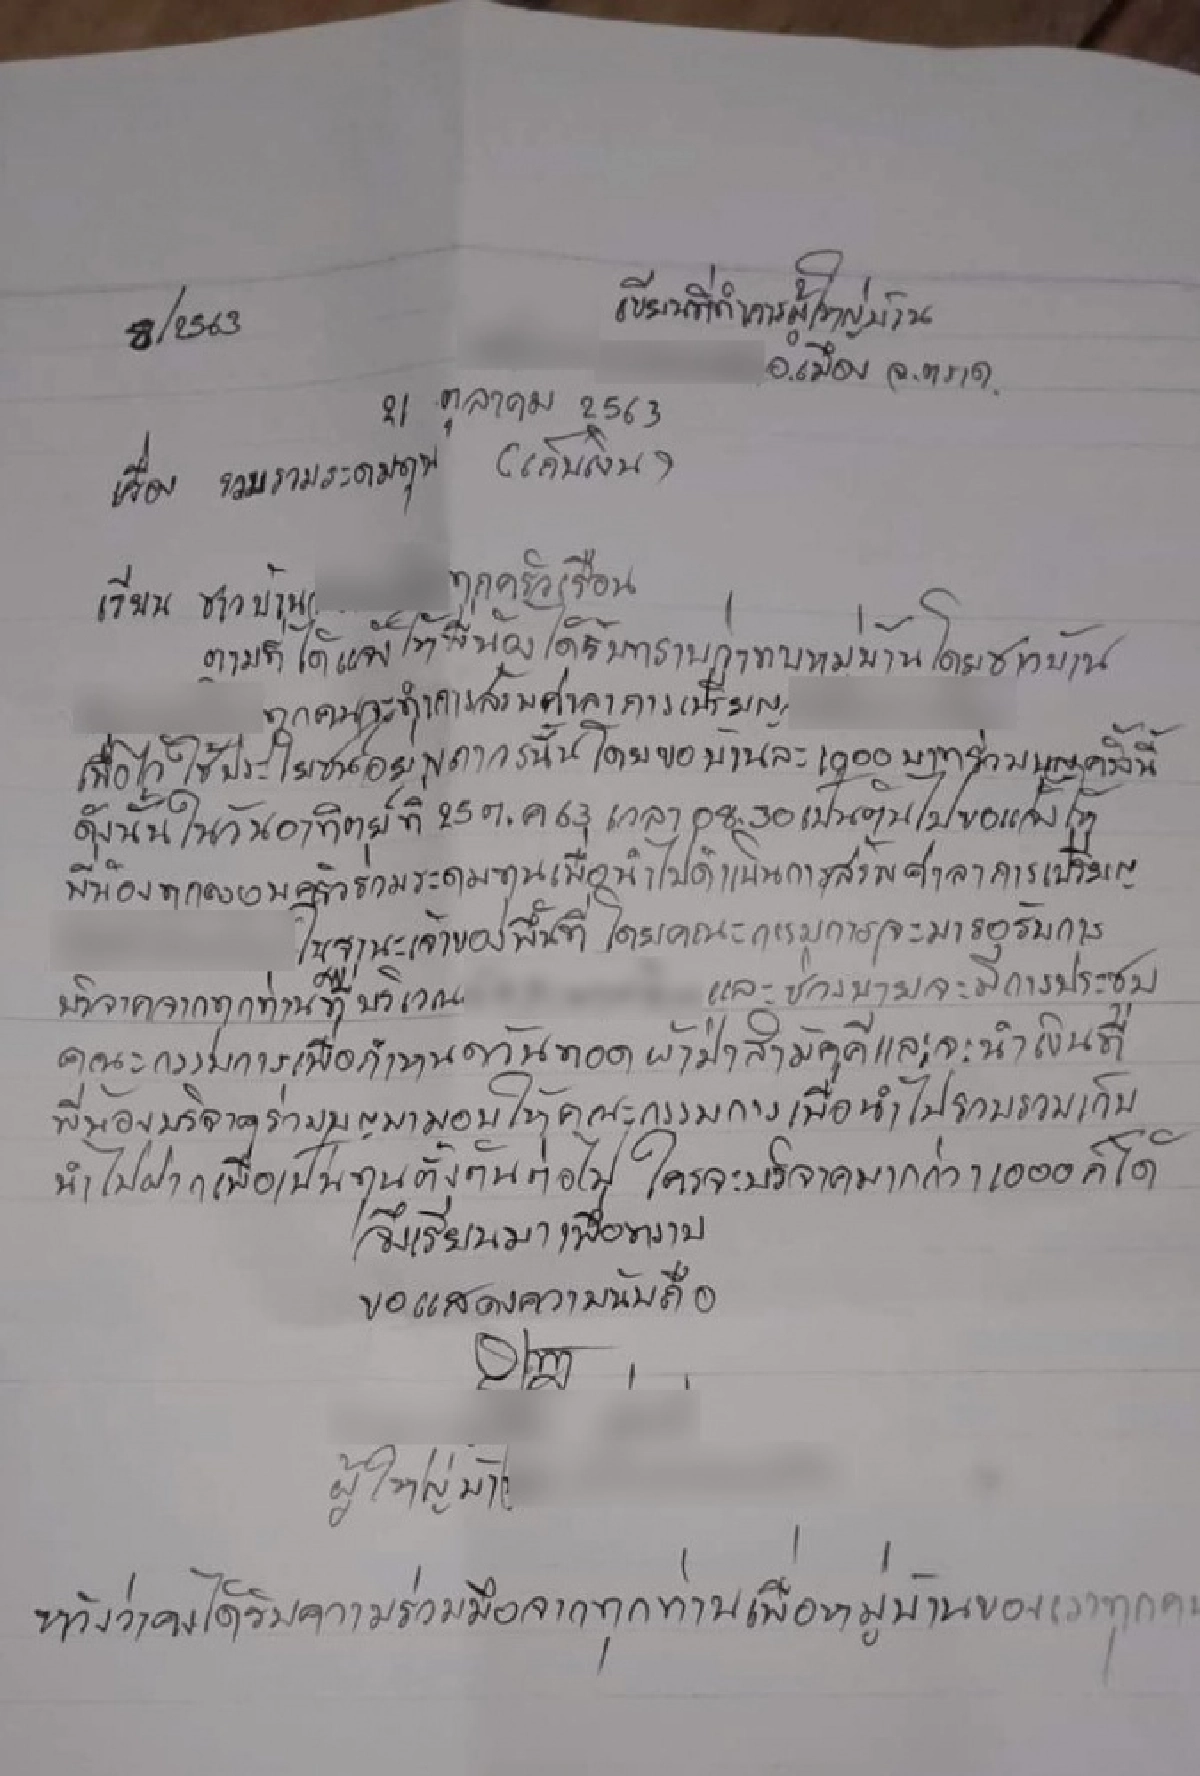 8/2563
เขียนที่ทำการผู้ใหญ่บ้าน
อ.เมือง จ.ตราด.
21 ตุลาคม 2563
เรื่อง รวบรวมระดมทุน (เก็บเงิน)
เรียน ชาวบ้าน ทุกครัวเรือน
ตามที่ได้แจ้งให้พี่น้องได้รับทราบว่าทางหมู่บ้านโดยชาวบ้าน
ทุกคนจะทำการสร้างศาลาการเปรียญ
เพื่อไว้ใช้ประโยชน์อยู่ โดยขอบ้านละ 1000 บาทร่วมบุญครั้งนี้
ดังนั้นในวันอาทิตย์ที่ 25 ต.ค 63 เวลา 08.30 เป็นต้นไปขอแจ้งให้
พี่น้องทุก ครัวร่วมระดมทุนเพื่อนำไปดำเนินการสร้างศาลาการเปรียญ
ในฐานะเจ้าของพื้นที่ โดยคณะกรรมการจะมารอรับการ
บริจาคจากทุกท่านอยู่ที่บริเวณ และช่วงบ่ายจะมีการประชุม
คณะกรรมการเพื่อกำหนดวันทอดผ้าป่าสามัคคีและจะนำเงินที่
พี่น้องบริจาคร่วมบุญมามอบให้คณะกรรมการเพื่อนำไปรวบรวมเก็บ
นำไปฝากเพื่อเป็นทุนตั้งต้นต่อไป ใครจะบริจาคมากกว่า 1000 ก็ได้
จึงเรียนมาเพื่อทราบ
ขอแสดงความนับถือ
ผู้ใหญ่บ้า
หวังว่าคงได้รับความร่วมมือจากทุกท่านเพื่อหมู่บ้านของเราทุกคน